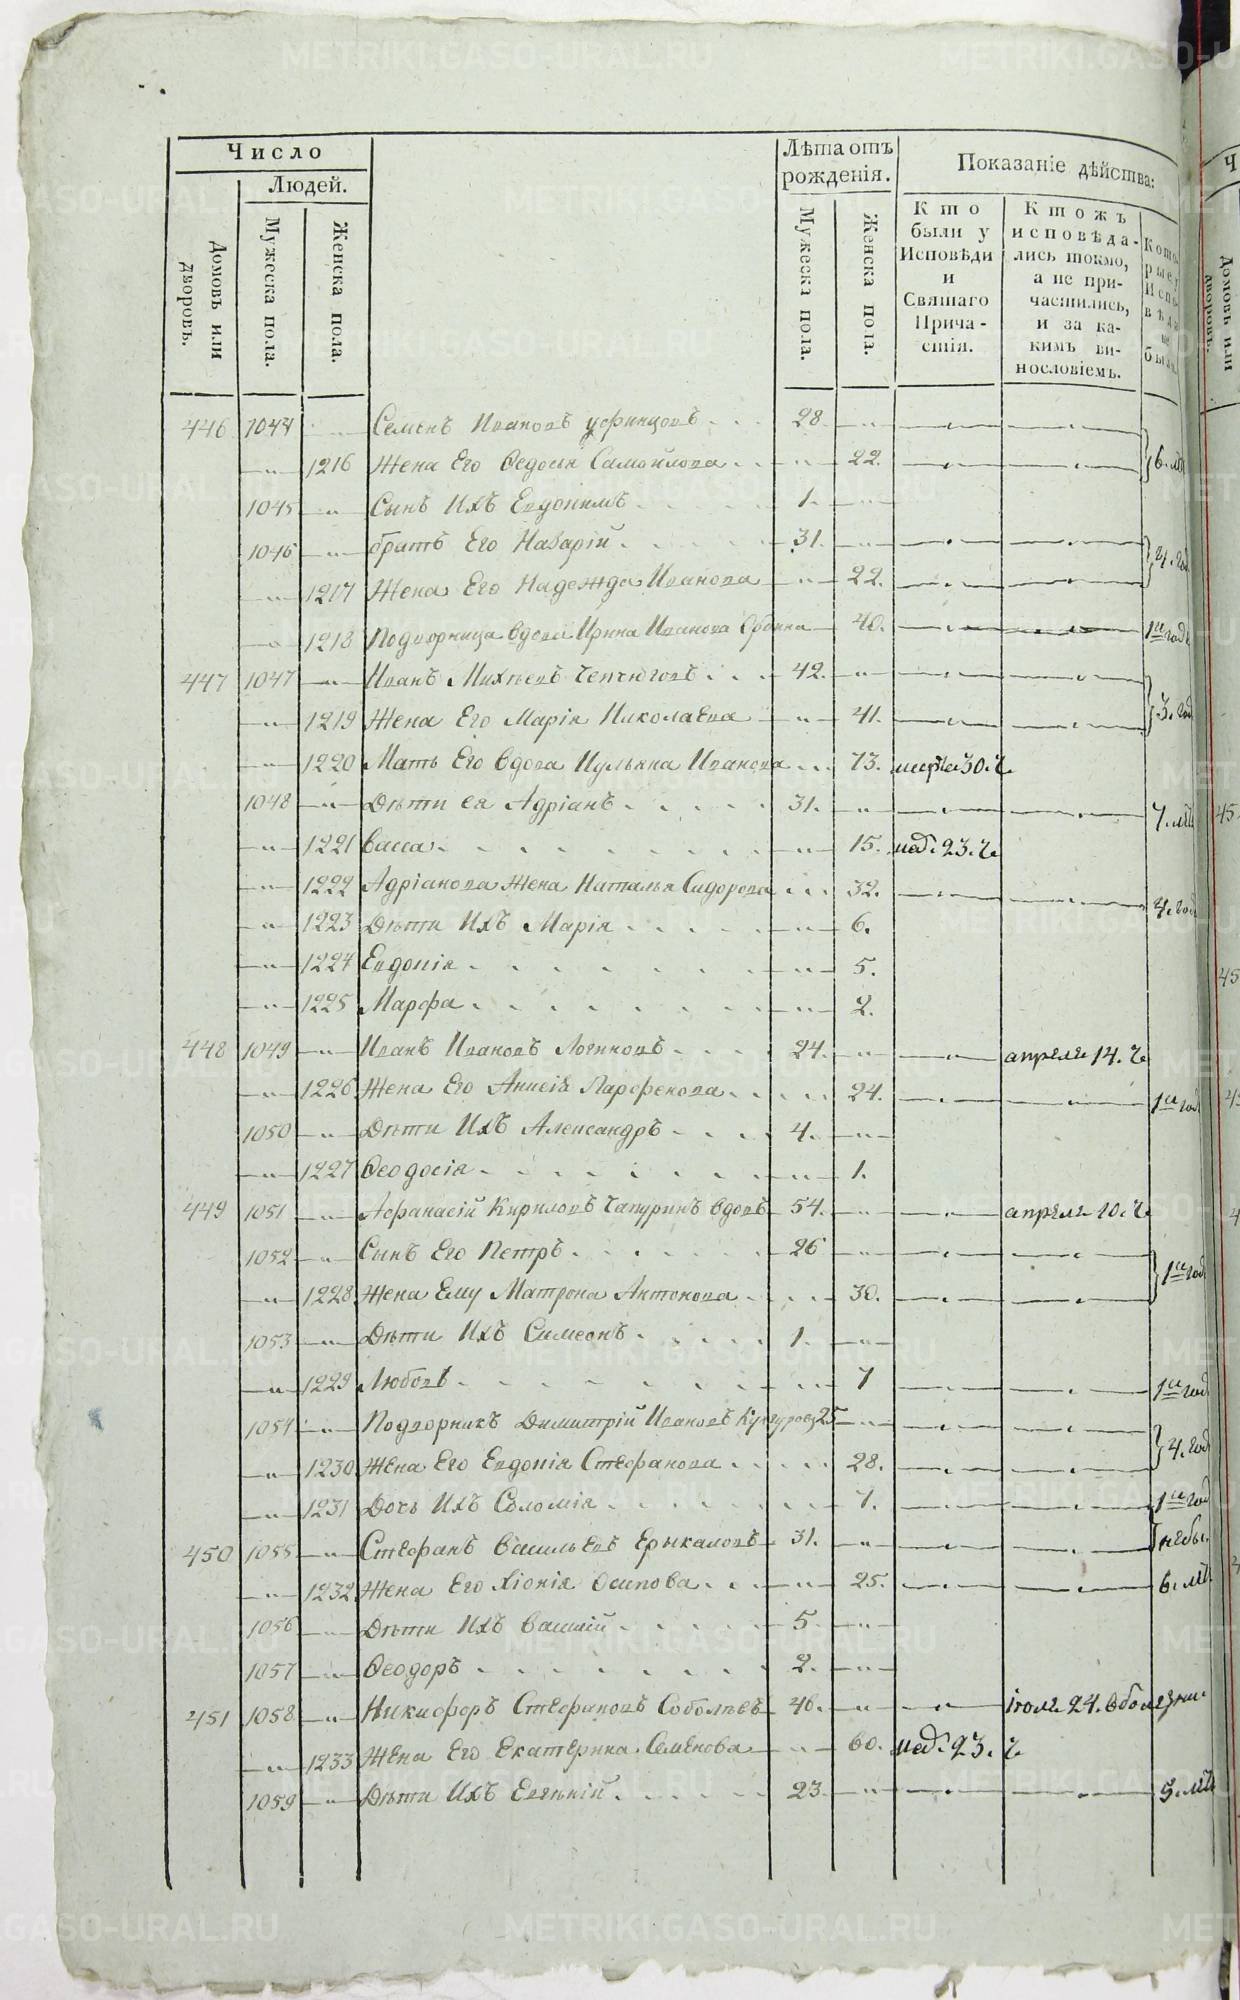 Число
Людей.
Домовъ или дворовъ.
Мужеска пола.
Женска пола.
Лѣта отъ рожденія.
Мужеска пола.
Женска пола.
Показаніе дѣйства:
Кто были у Исповѣди и Святаго Причастія.
Ктожъ исповѣдались токмо, а не причастились, и за какимъ винословіемъ.
Которые у Исповѣди не были.
446 1044 Семенъ Ивановъ 28
1216 Жена Его Ѳедосія Самойлова 22. 6. лѣ
1045 Сынъ Ихъ Евдокимъ 1.
1046 братъ Его Назарій 31.
1217 Жена Его Надежда Иванова 22. 4. год
1218 Подворница вдова Ирина Иванова 40. 1й годъ
447 1047 Иванъ Михѣевъ 42.
1219 Жена Его Марія Николаева 41. 3. год
1220 Мать Его вдова Иульяна Иванова 73. марта 30. ч.
1048 Дѣти ея Адріанъ 31. 7. лѣт
1221 Васса 15. 23. ч.
1222 Адріанова Жена Наталья Сидорова 32. 4. год
1223 Дѣти Ихъ Марія 6.
1224 Евдокія 5.
1225 Марфа 2.
448 1049 Иванъ Ивановъ Логиновъ 24. апреля 14. ч.
1226 Жена Его Анисія Парфенова 24. 1й год
1050 Дѣти Ихъ Александръ 4.
1227 Ѳеодосія 1.
449 1051 Афанасій Кириловъ Чапуринъ вдовъ 54. апреля 10. ч.
1052 Сынъ Его Петръ 26
1228 Жена Ему Матрона Антонова 30. 1й год
1053 Дѣти Ихъ Симеонъ 1.
1229 Любовь 7 1й год
1054 Подворникъ Димитрій Ивановъ 25
1230 Жена Его Евдокія Стефанова 28. 4. год
1231 Дочь Ихъ Соломія 7. 1й год
450 1055 Стефанъ Васильевъ Ерыкаловъ 31. небы.
1232 Жена Его Хіонія Осипова 25. 6. лѣт
1056 Дѣти Ихъ Василій 5.
1057 Ѳеодоръ 2.
451 1058 Никифоръ Стефановъ Соболевъ 46. 24. в болезни.
1233 Жена Его Екатерина Семенова 60. 23. ч
1059 Дѣти Ихъ Евгеній 23 5. лѣт
METRIKI.GASO-URAL.RU